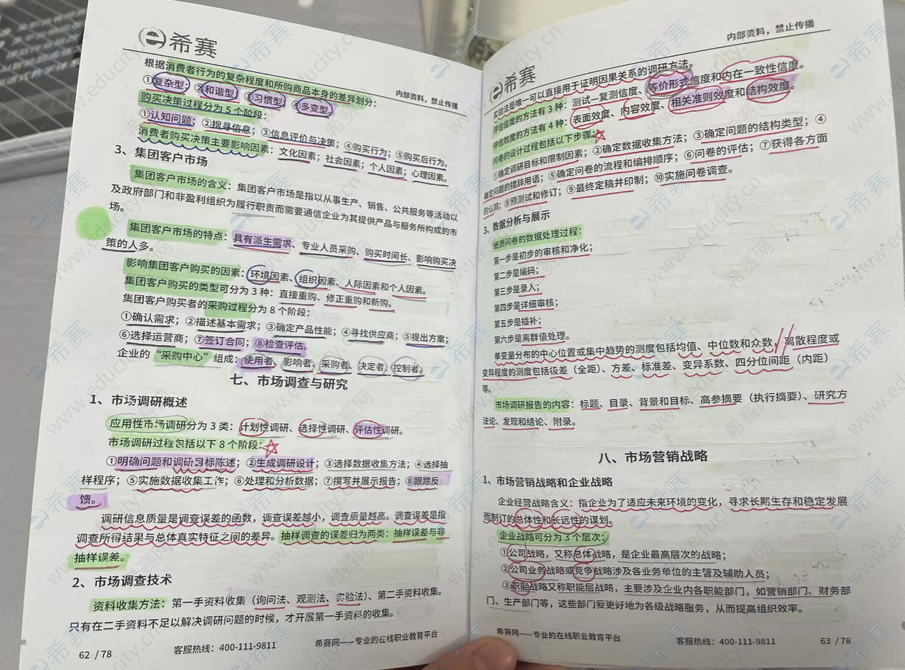 希赛
内部资料，禁止传播
根据消费者行为的复杂程度和所购商品本身的差异划分：
①复杂型；②和谐型；③习惯型；④多变型；
购买决策过程分为5个阶段：
①认知问题；②搜寻信息；③信息评价与决策；④购买行为；⑤购买后行为。
消费者购买决策主要影响因素：文化因素；社会因素；个人因素；心理因素。
3、集团客户市场
集团客户市场的含义：集团客户市场是指以从事生产、销售、公共服务等活动以
及政府部门和非盈利组织为履行职责而需要通信企业为其提供产品与服务所构成的市
场。
集团客户市场的特点：具有派生需求、专业人员采购、购买时间长、影响购买决
策的人多。
影响集团客户购买的因素：环境因素、组织因素、人际因素和个人因素。
集团客户购买的类型可分为3种：直接重购、修正重购和新购。
集团客户购买者的采购过程分为8个阶段：
①确认需求；②描述基本需求；③确定产品性能；④寻找供应商；⑤提出方案；
⑥选择运营商；⑦签订合同；⑧检查评估。
企业的“采购中心”组成：使用者、影响者、采购者、决定者、控制者。
七、市场调查与研究
1、市场调研概述
应用性市场调研分为3类：计划性调研、选择性调研、评估性调研。
市场调研过程包括以下8个阶段：
①明确问题和调研目标陈述；②生成调研设计；③选择数据收集方法；④选择抽
样程序；⑤实施数据收集工作；⑥处理和分析数据；⑦撰写并展示报告；⑧跟踪反
馈。
调研信息质量是调查误差的函数，调查误差越小，调查质量越高。调查误差是指
调查所得结果与总体真实特征之间的差异。抽样调查的误差归为两类：抽样误差与非
抽样误差。
2、市场调查技术
资料收集方法：第一手资料收集（询问法、观测法、实验法）、第二手资料收集。
只有在二手资料不足以解决调研问题的时候，才开展第一手资料的收集。
希赛网——专业的在线职业教育平台
62 / 78
客服热线：400-111-9811
希赛
内部资料，禁止传播
实验法是唯一可以直接用于证明因果关系的调研方法。
评估信度的方法有3种：测试—复测信度、等价形式信度和内在一致性信度。
评估效度的方法有4种：表面效度、内容效度、相关准则效度和结构效度。
问卷的设计过程包括以下步骤：
①确定调研目标和限制因素；②确定数据收集方法；③确定问题的结构类型；④
确定问题的措辞用语；⑤确定问卷的流程和编排顺序；⑥问卷的评估；⑦获得各方面
的认同；⑧预测试和修订；⑨最终定稿并印制；⑩实施问卷调查。
3、数据分析与展示
纸质问卷的数据处理过程：
第一步是初步的审核和净化；
第二步是编码；
第三步是录入；
第四步是详细审核；
第五步是插补；
第六步是离群值处理。
单变量分布的中心位置或集中趋势的测度包括均值、中位数和众数，离散程度或
变异程度的测度包括极差（全距）、方差、标准差、变异系数、四分位间距（内距）
等。
市场调研报告的内容：标题、目录、背景和目标、高参摘要（执行摘要）、研究方
法论、发现和结论、附录。
八、市场营销战略
1、市场营销战略和企业战略
企业经营战略含义：指企业为了适应未来环境的变化，寻求长期生存和稳定发展
而制订的总体性和长远性的谋划。
企业战略可分为3个层次：
①公司战略，又称总体战略，是企业最高层次的战略；
②公司业务战略或竞争战略涉及各业务单位的主管及辅助人员；
③职能战略又称职能层战略，主要涉及企业内各职能部门，如营销部门、财务部
门、生产部门等，这些部门要更好地为各级战略服务，从而提高组织效率。
希赛网——专业的在线职业教育平台
客服热线：400-111-9811
63 / 78